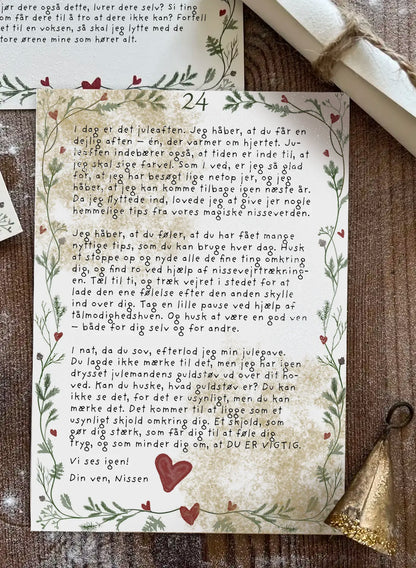 jør dere også dette, lurer dere selv? Si ting
som får dere til å tro at dere ikke kan? Fortell
det til en voksen, så skal jeg lytte med de
store ørene mine som hører alt.
24
I dag er det juleaften. Jeg håber, at du får en
dejlig aften – én, der varmer om hjertet. Ju-
leaften indebærer også, at tiden er inde til, at
jeg skal sige farvel. Som I ved, er jeg så glad
for, at jeg har besøgt lige netop jer, og jeg
håber, at jeg kan komme tilbage igen næste år.
Da jeg flyttede ind, lovede jeg at give jer nogle
hemmelige tips fra vores magiske nisseverden.
Jeg håber, at du føler, at du har fået mange
nyttige tips, som du kan bruge hver dag. Husk
at stoppe op og nyde alle de fine ting omkring
dig, og find ro ved hjælp af nissevejrtrækning-
en. Tæl til ti, og træk vejret i stedet for at
lade den ene følelse efter den anden skylle
ind over dig. Tag en lille pause ved hjælp af
tålmodighedshuen. Og husk at være en god ven
– både for dig selv og for andre.
I nat, da du sov, efterlod jeg min julegave.
Du lagde ikke mærke til det, men jeg har igen
drysset julemandens guldstøv ud over dit ho-
ved. Kan du huske, hvad guldstøv er? Du kan
ikke se det, for det er usynligt, men du kan
mærke det. Det kommer til at ligge som et
usynligt skjold omkring dig. Et skjold, som
gør dig stærk, som får dig til at føle dig
tryg, og som minder dig om, at DU ER VIGTIG.
Vi ses igen!
Din ven, Nissen